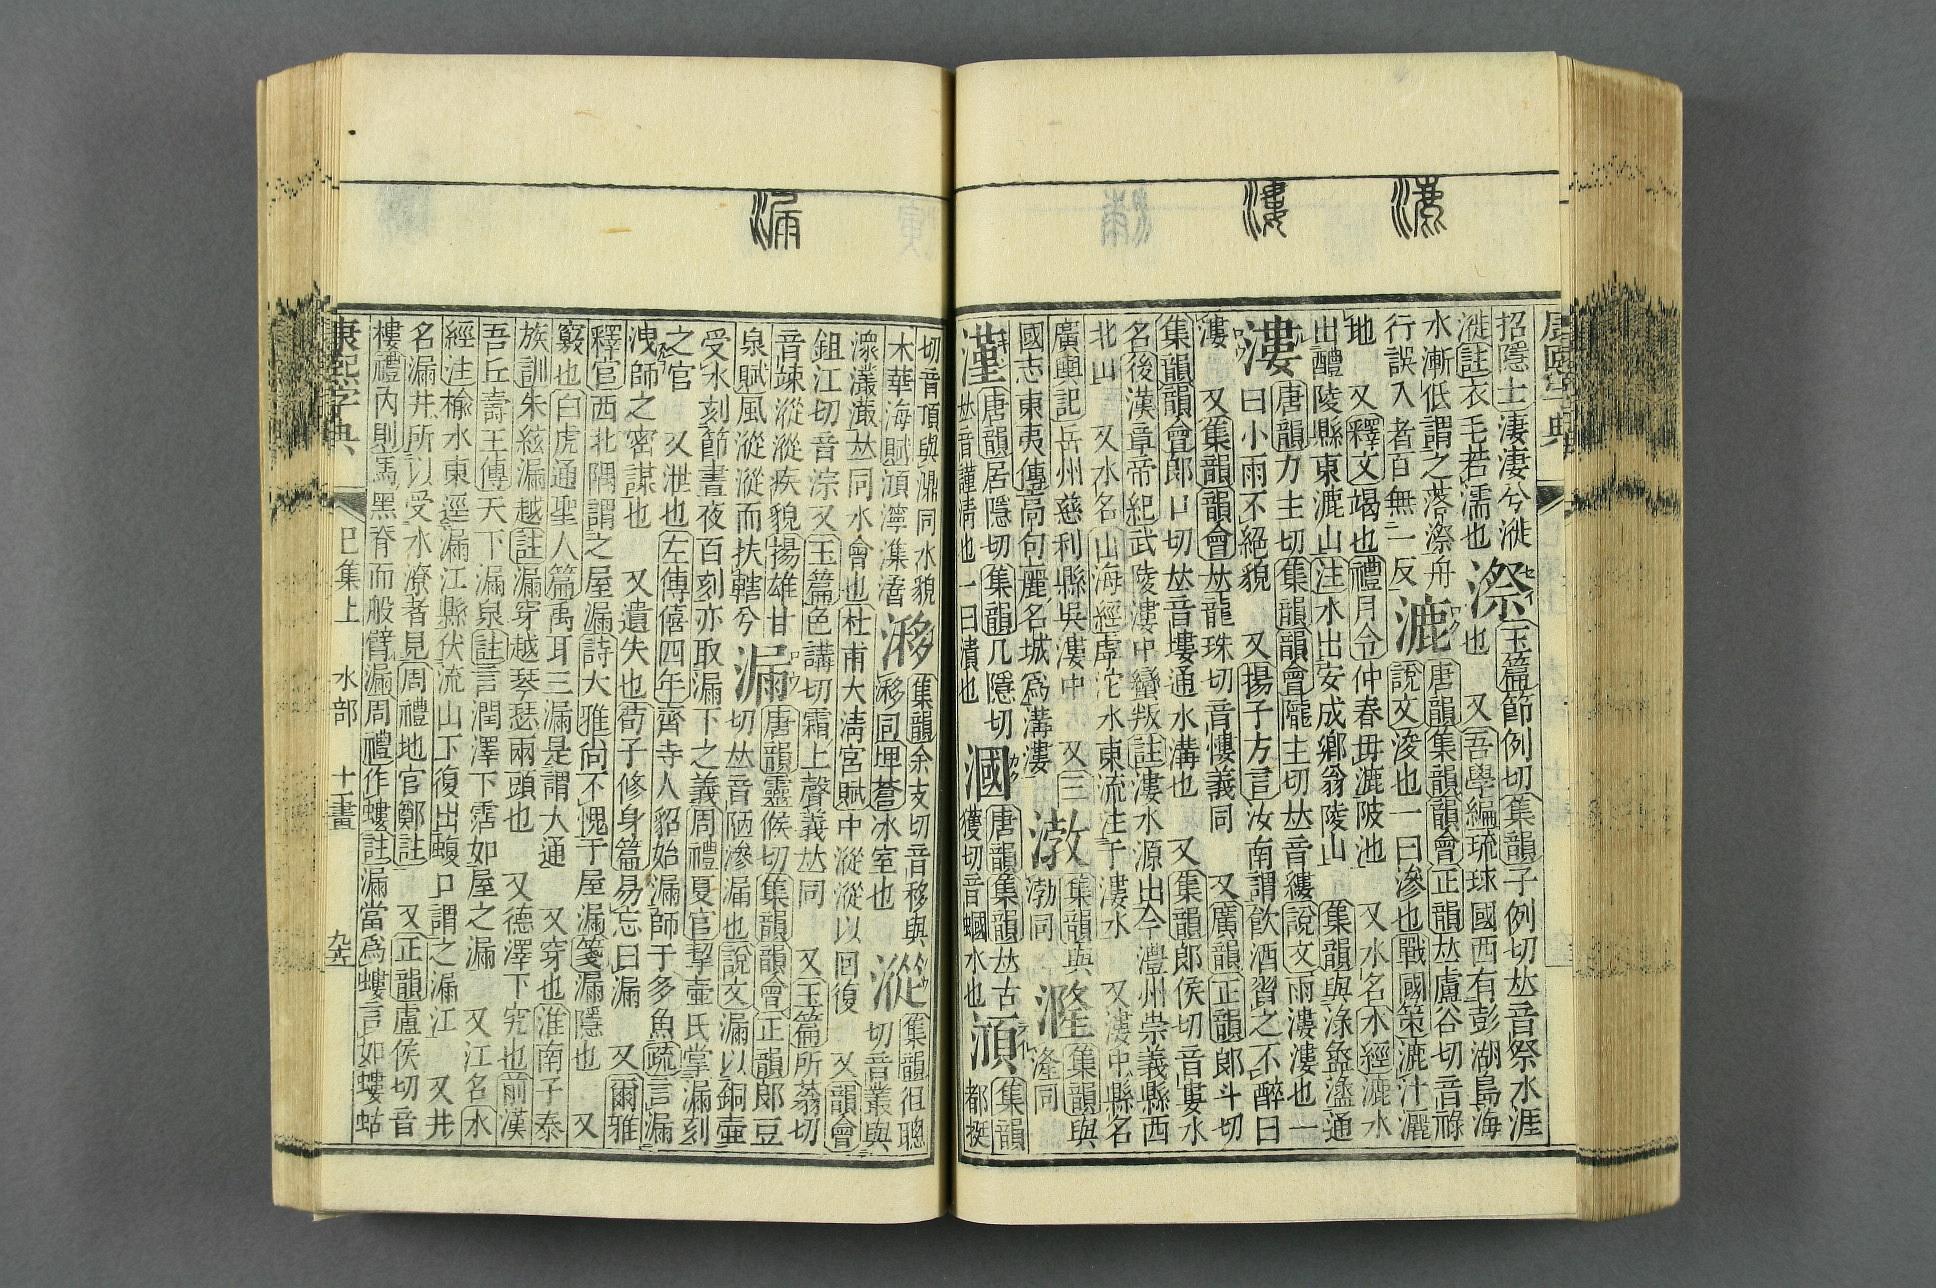 漉
漊
招隱士淒淒兮漇漈玉篇節例切集韻子例切𠀤音祭水涯
漇註衣毛若濡也也又吾學編琉球國西有彭湖島海
水漸低謂之落漈舟漉唐韻集韻韻會正韻𠀤盧谷切音祿
行誤入者百無一反說文浚也一曰滲也戰國策漉汁灑
地又釋文竭也禮月令仲春毋漉陂池又水名水經漉水
出醴陵縣東漉山注水出安成鄉翁陵山集韻與淥盝盪通
漊唐韻力主切集韻韻會隴主切𠀤音縷說文雨漊漊也一
曰小雨不絕貌又揚子方言汝南謂飲酒習之不醉曰
漊又集韻韻會𠀤龍珠切音慺義同又廣韻正韻郎斗切
集韻韻會郎口切𠀤音塿通水溝也又集韻郎侯切音婁水
名後漢章帝紀武陵漊中蠻叛註漊水源出今澧州崇義縣西
北山又水名山海經虖沱水東流注于漊水又漊中縣名
廣輿記岳州慈利縣吳漊中又三漖集韻與漋集韻與
國志東夷傳高句麗名城爲溝漊渤同湰同
漌唐韻居隱切集韻几隱切漍唐韻集韻𠀤古集韻
𠀤音謹清也一曰漬也獲切音蟈水也都挺
漏
切音頂與濎同水貌集韻余支切音移與漎集韻徂聰
木華海賦濘潗同埤蒼冰室也切音叢與
潀灇潨𠀤同水會也杜甫大清宮賦中漎漎以回復又韻會
鉏江切音淙又玉篇色講切霜上聲義𠀤同又玉篇所蓊切
音竦漎漎疾貌揚雄甘漏唐韻靈候切集韻韻會正韻郎豆
泉賦風漎漎而扶轄兮切𠀤音陋滲漏也說文漏以銅壺
受水刻節晝夜百刻亦取漏下之義周禮夏官挈壺氏掌漏刻
之官又泄也左傳僖四年齊寺人貂始漏師于多魚疏言漏
洩師之密謀也又遺失也荀子修身篇易忘曰漏又爾雅
釋宮西北隅謂之屋漏詩大雅尚不愧于屋漏箋漏隱也又
竅也白虎通聖人篇禹耳三漏是謂大通又穿也淮南子泰
族訓朱絃漏越註漏穿越琴瑟兩頭也又德澤下究也前漢
吾丘壽王傳天下漏泉註言潤澤下霑如屋之漏又江名水
經注楡水東逕漏江縣伏流山下復出蝮口謂之漏江又井
名漏井所以受水潦者見周禮地官鄭註又正韻盧侯切音
樓禮內則馬黑脊而般臂漏周禮作螻註漏當爲螻言如螻蛄
康熙字典 巳集上 水部 十一畫